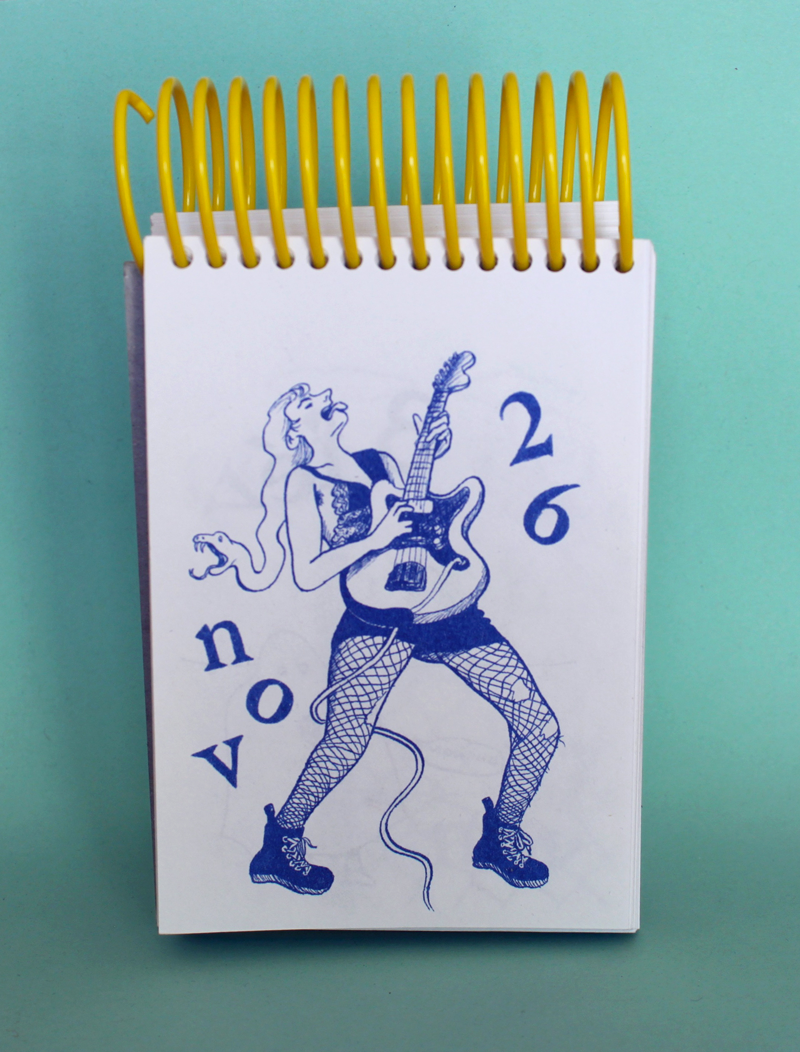 26
nov